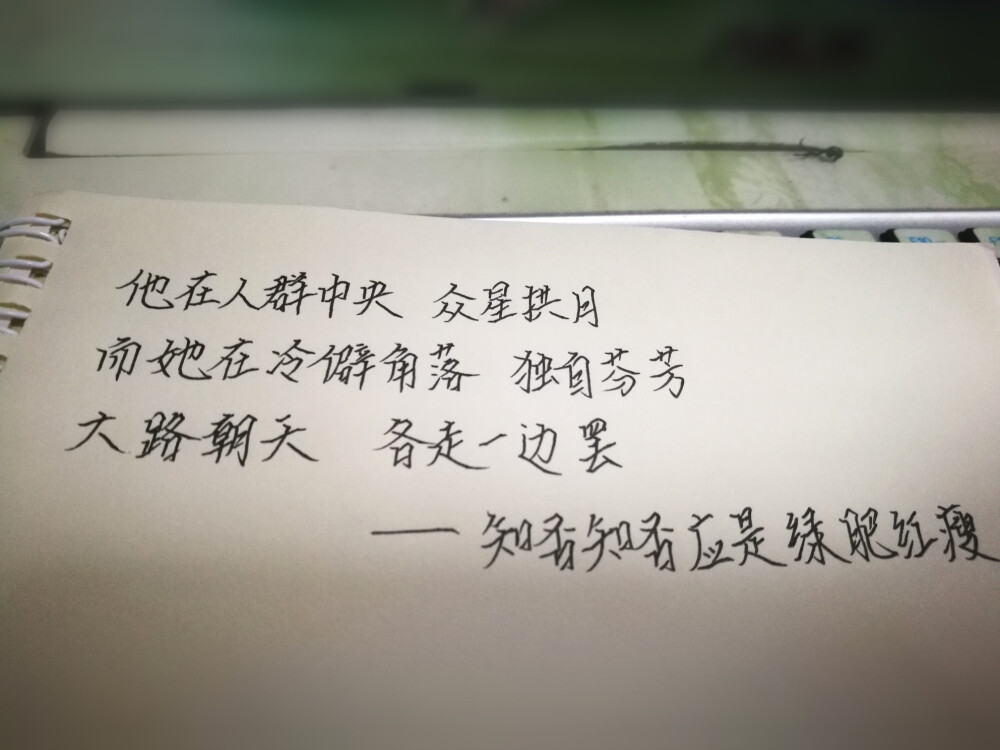 他在人群中央 众星拱月
而她在冷僻角落 独自芬芳
大路朝天 各走一边罢
——知否知否应是绿肥红瘦